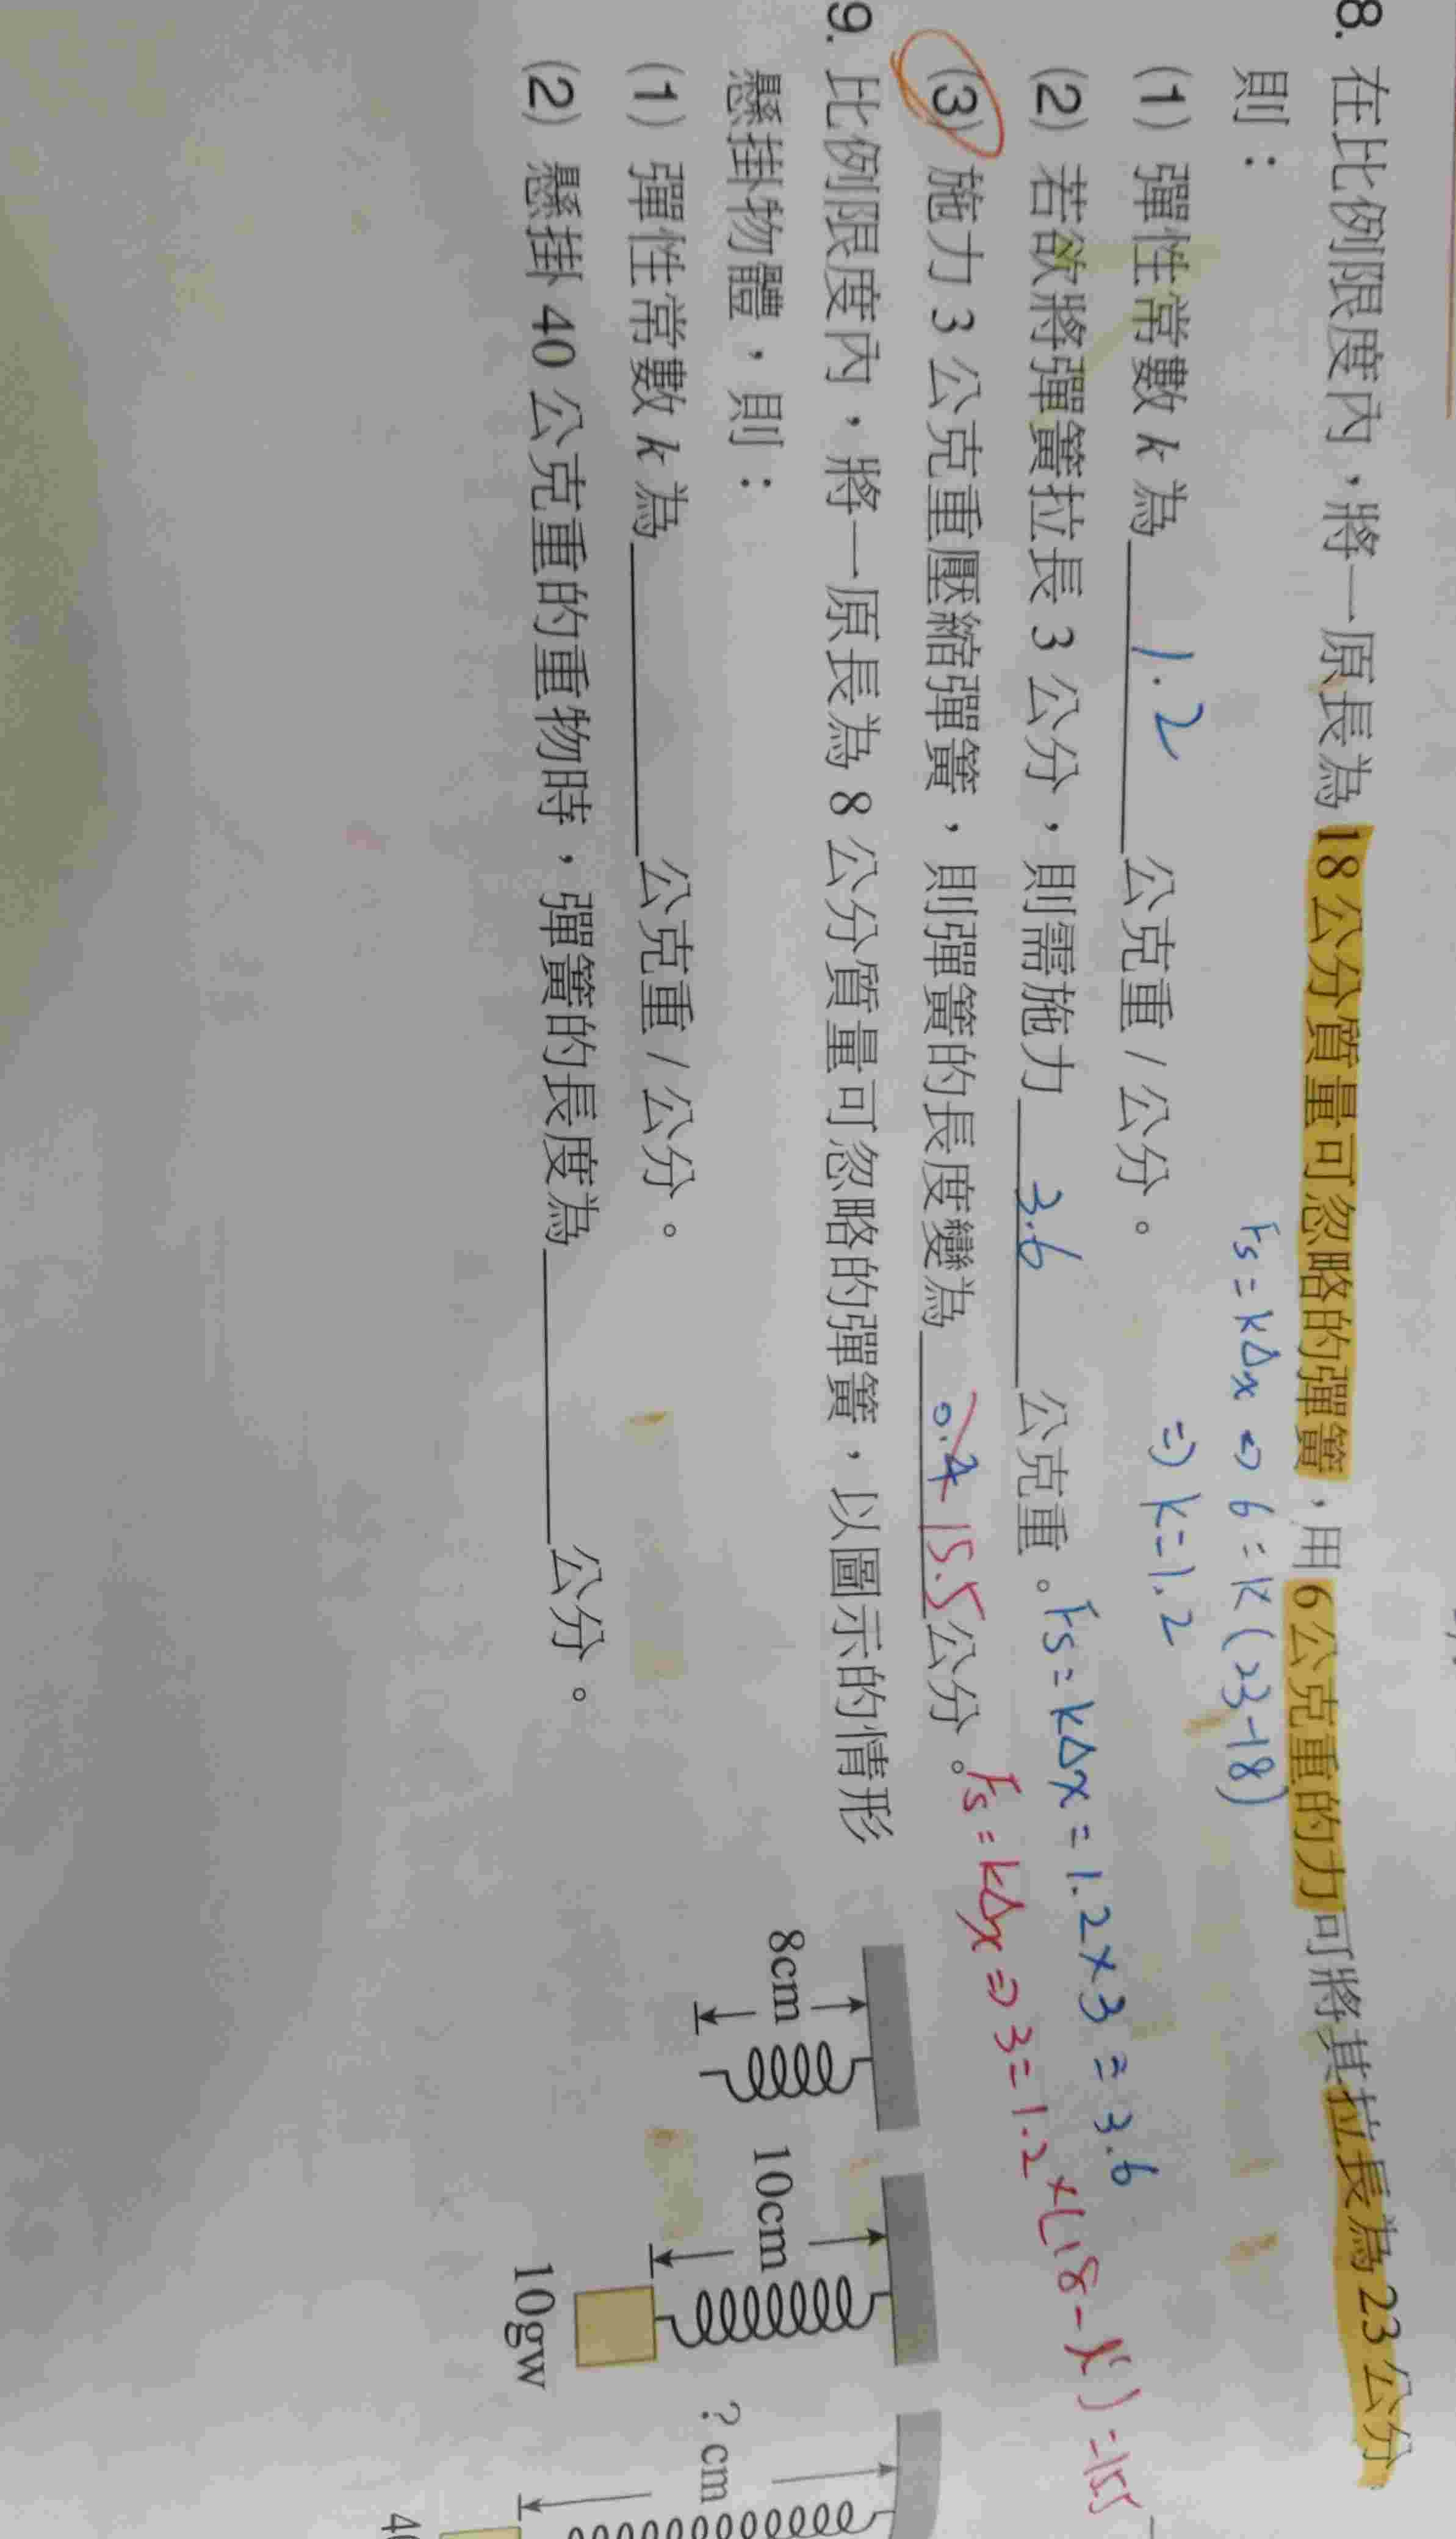 8. 在比例限度內，將一原長為 18 公分質量可忽略的彈簧，用 6 公克重的力可將其拉長為 23 公分，
則：
Fs = kΔx ⇒ 6 = k (23-18)
(1) 彈性常數 k 為 1.2 公克重 / 公分。 ⇒ k = 1.2
(2) 若欲將彈簧拉長 3 公分，則需施力 3.6 公克重。 Fs = kΔx = 1.2 × 3 = 3.6
(3) 施力 3 公克重壓縮彈簧，則彈簧的長度變為 15.5 公分。 Fs = kΔx ⇒ 3 = 1.2 × (18 - x') = 15.5
9. 比例限度內，將一原長為 8 公分質量可忽略的彈簧，以圖示的情形
懸掛物體，則：
(1) 彈性常數 k 為 公克重 / 公分。
(2) 懸掛 40 公克重的重物時，彈簧的長度為 公分。
8cm
10cm
? cm
10gw